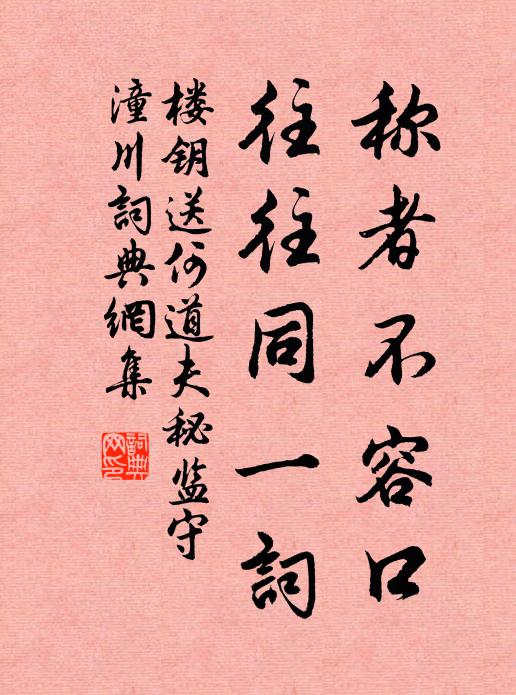 称者不容口
往往同一詞
楼钥送何道夫秘监守
潼川詞典網集
詞典网印